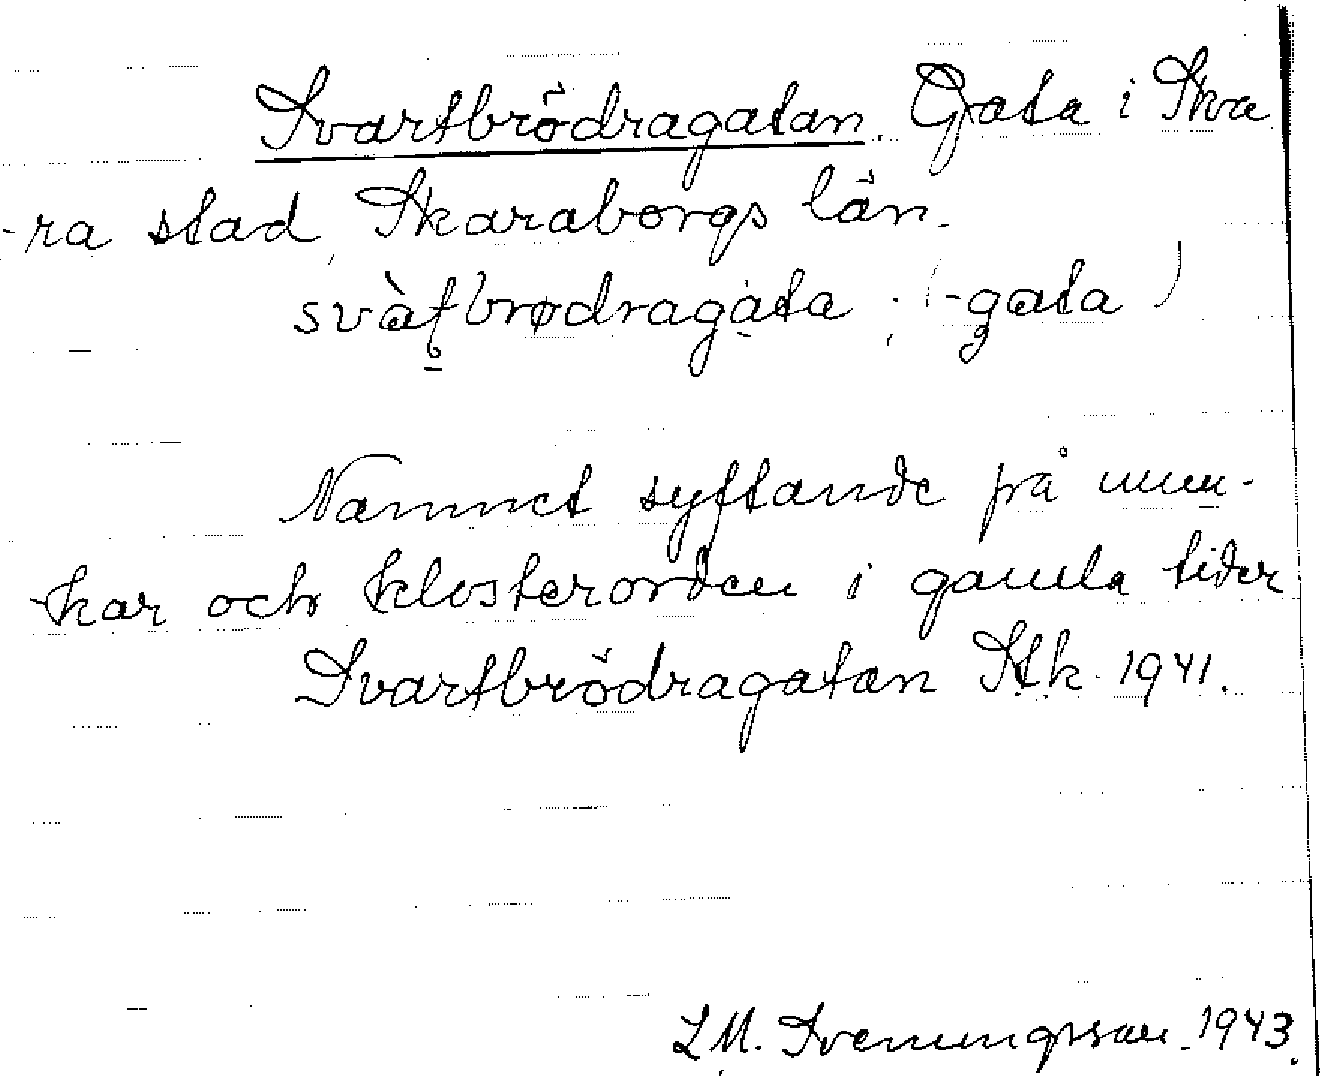 Svartbrödragatan. Gata i Ska
-ra stad, Skaraborgs län.
svàt̠brødragàta ; (-gata)
Namnet syftande på mun-
kar och klosterorden i gamla tider
Svartbrödragatan Stk 1941.
L M. Svenungsson 1943.